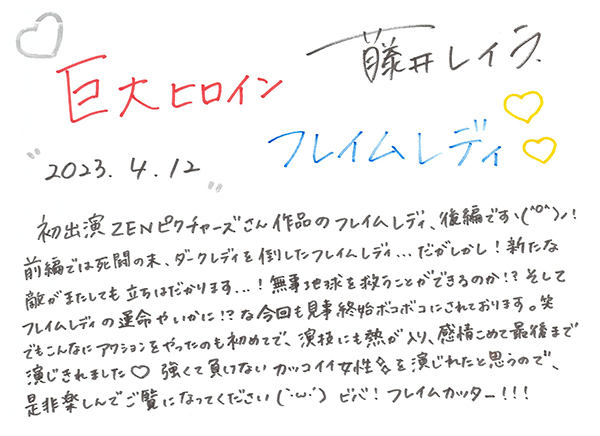 藤井レイラ
巨大ヒロイン
フレイムレディ
"2023.4.12"
初出演ZENピクチャーズさん作品のフレイムレディ、後編ですヽ(^o^)ノ!
前編では死闘の末、ダークレディを倒したフレイムレディ...だがしかし!新たな
敵がまたしても立ちはだかります...!無事地球を救うことができるのか!?そして
フレイムレディの運命やいかに!?な今回も見事終始ボコボコにされております。笑
でもこんなにアクションをやったのも初めてで、演技にも熱が入り、感情こめて最後まで
演じきれました♡強くて負けないカッコイイ女性を演じれたと思うので、
是非楽しんでご覧になってください(˙ω˙)ビバ!フレイムカッター!!!